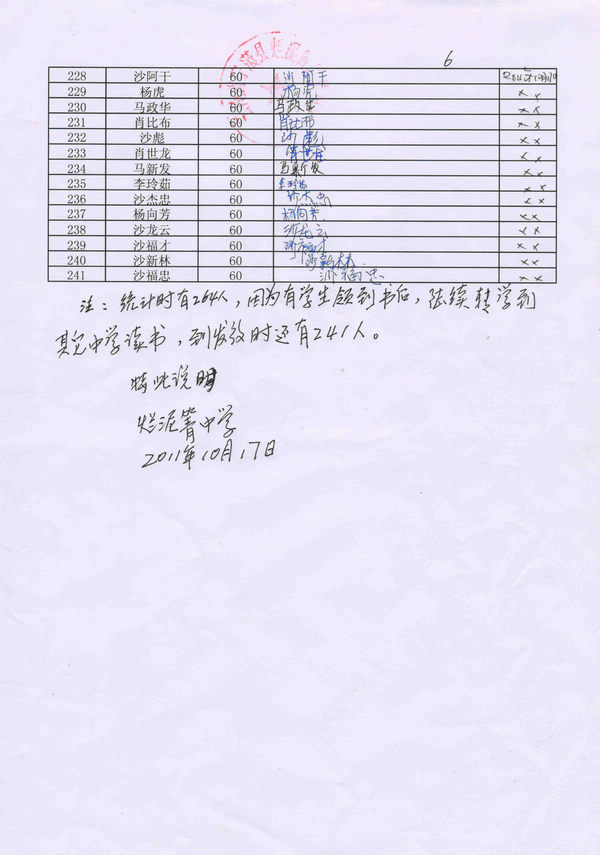 6
228 沙阿干 60 沙阿干
229 杨虎 60 杨虎 × ×
230 马政华 60 马政华 × ×
231 肖比布 60 肖比布 × ×
232 沙彪 60 沙彪 × ×
233 肖世龙 60 肖世龙 × ×
234 马新发 60 马新发 × ×
235 李玲茹 60 李玲茹 × ×
236 沙杰忠 60 沙杰忠 × ×
237 杨向芳 60 杨向芳 × ×
238 沙龙云 60 沙龙云 × ×
239 沙福才 60 沙福才 × ×
240 沙新林 60 沙新林 × ×
241 沙福忠 60 沙福忠 × ×
注：统计时有264人，因为有学生领到书后，陆续转学到
其它中学读书，到发放时还有241人。
特此说明
烂泥箐中学
2011年10月17日